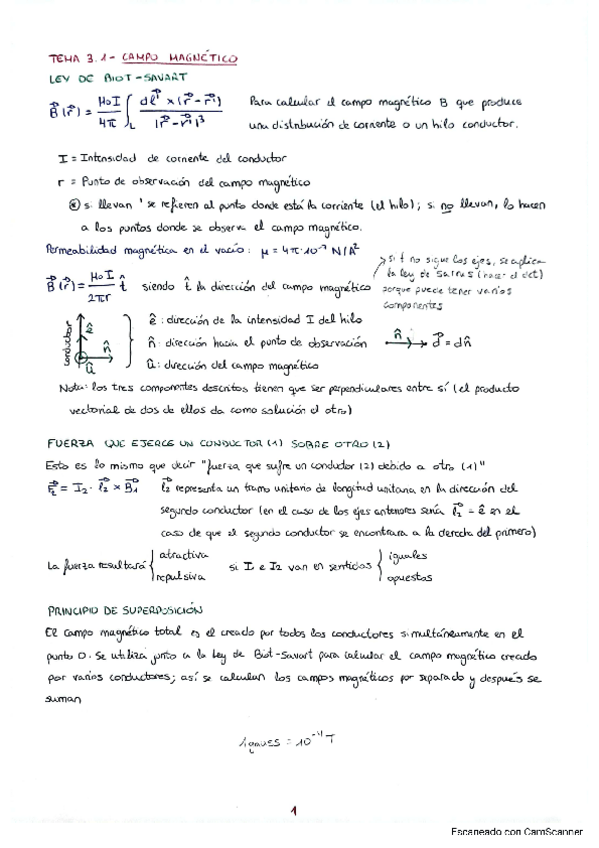 TEMA 3.1- CAMPO MAGNÉTICO
LEY DE BIOT-SAVART
B⃗(r⃗) = μoI/4π ∫L dl⃗' × (r⃗ - r⃗')/|r⃗ - r⃗'|³ Para calcular el campo magnético B que produce
una distribución de corriente o un hilo conductor.
I = Intensidad de corriente del conductor
r = Punto de observación del campo magnético
* si llevan ' se refieren al punto donde está la corriente (el hilo); si no llevan, lo hacen
a los puntos donde se observa el campo magnético.
Permeabilidad magnética en el vacío: μ = 4π·10⁻⁷ N/A²
B⃗(r⃗) = μoI/2πr t̂ siendo t̂ la dirección del campo magnético
si t no sigue los ejes, se aplica
la ley de Sarrus (hacer el det)
porque puede tener varios
componentes
conductor ê n̂ û
ê: dirección de la intensidad I del hilo
n̂: dirección hacia el punto de observación n̂ d⃗ = dn̂
û: dirección del campo magnético
Nota: los tres componentes descritos tienen que ser perpendiculares entre sí (el producto
vectorial de dos de ellos da como solución el otro)
FUERZA QUE EJERCE UN CONDUCTOR (1) SOBRE OTRO (2)
Esto es lo mismo que decir "fuerza que sufre un conductor (2) debido a otro (1)"
F⃗2 = I2 · l⃗2 × B⃗1 l⃗2 representa un tramo unitario de longitud unitaria en la dirección del
segundo conductor (en el caso de los ejes anteriores sería l⃗2 = ê en el
caso de que el segundo conductor se encontrara a la derecha del primero)
La fuerza resultará { atractiva / repulsiva si I1 e I2 van en sentidos { iguales / opuestos
PRINCIPIO DE SUPERPOSICIÓN
El campo magnético total es el creado por todos los conductores simultáneamente en el
punto O. Se utiliza junto a la ley de Biot-Savart para calcular el campo magnético creado
por varios conductores; así se calculan los campos magnéticos por separado y después se
suman
1gauss = 10⁻⁴ T
1
Escaneado con CamScanner